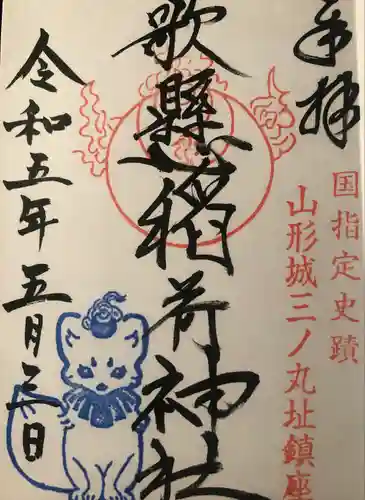 奉拝
国指定史蹟
山形城三ノ丸址鎮座
歌懸稲荷神社
令和五年五月三日